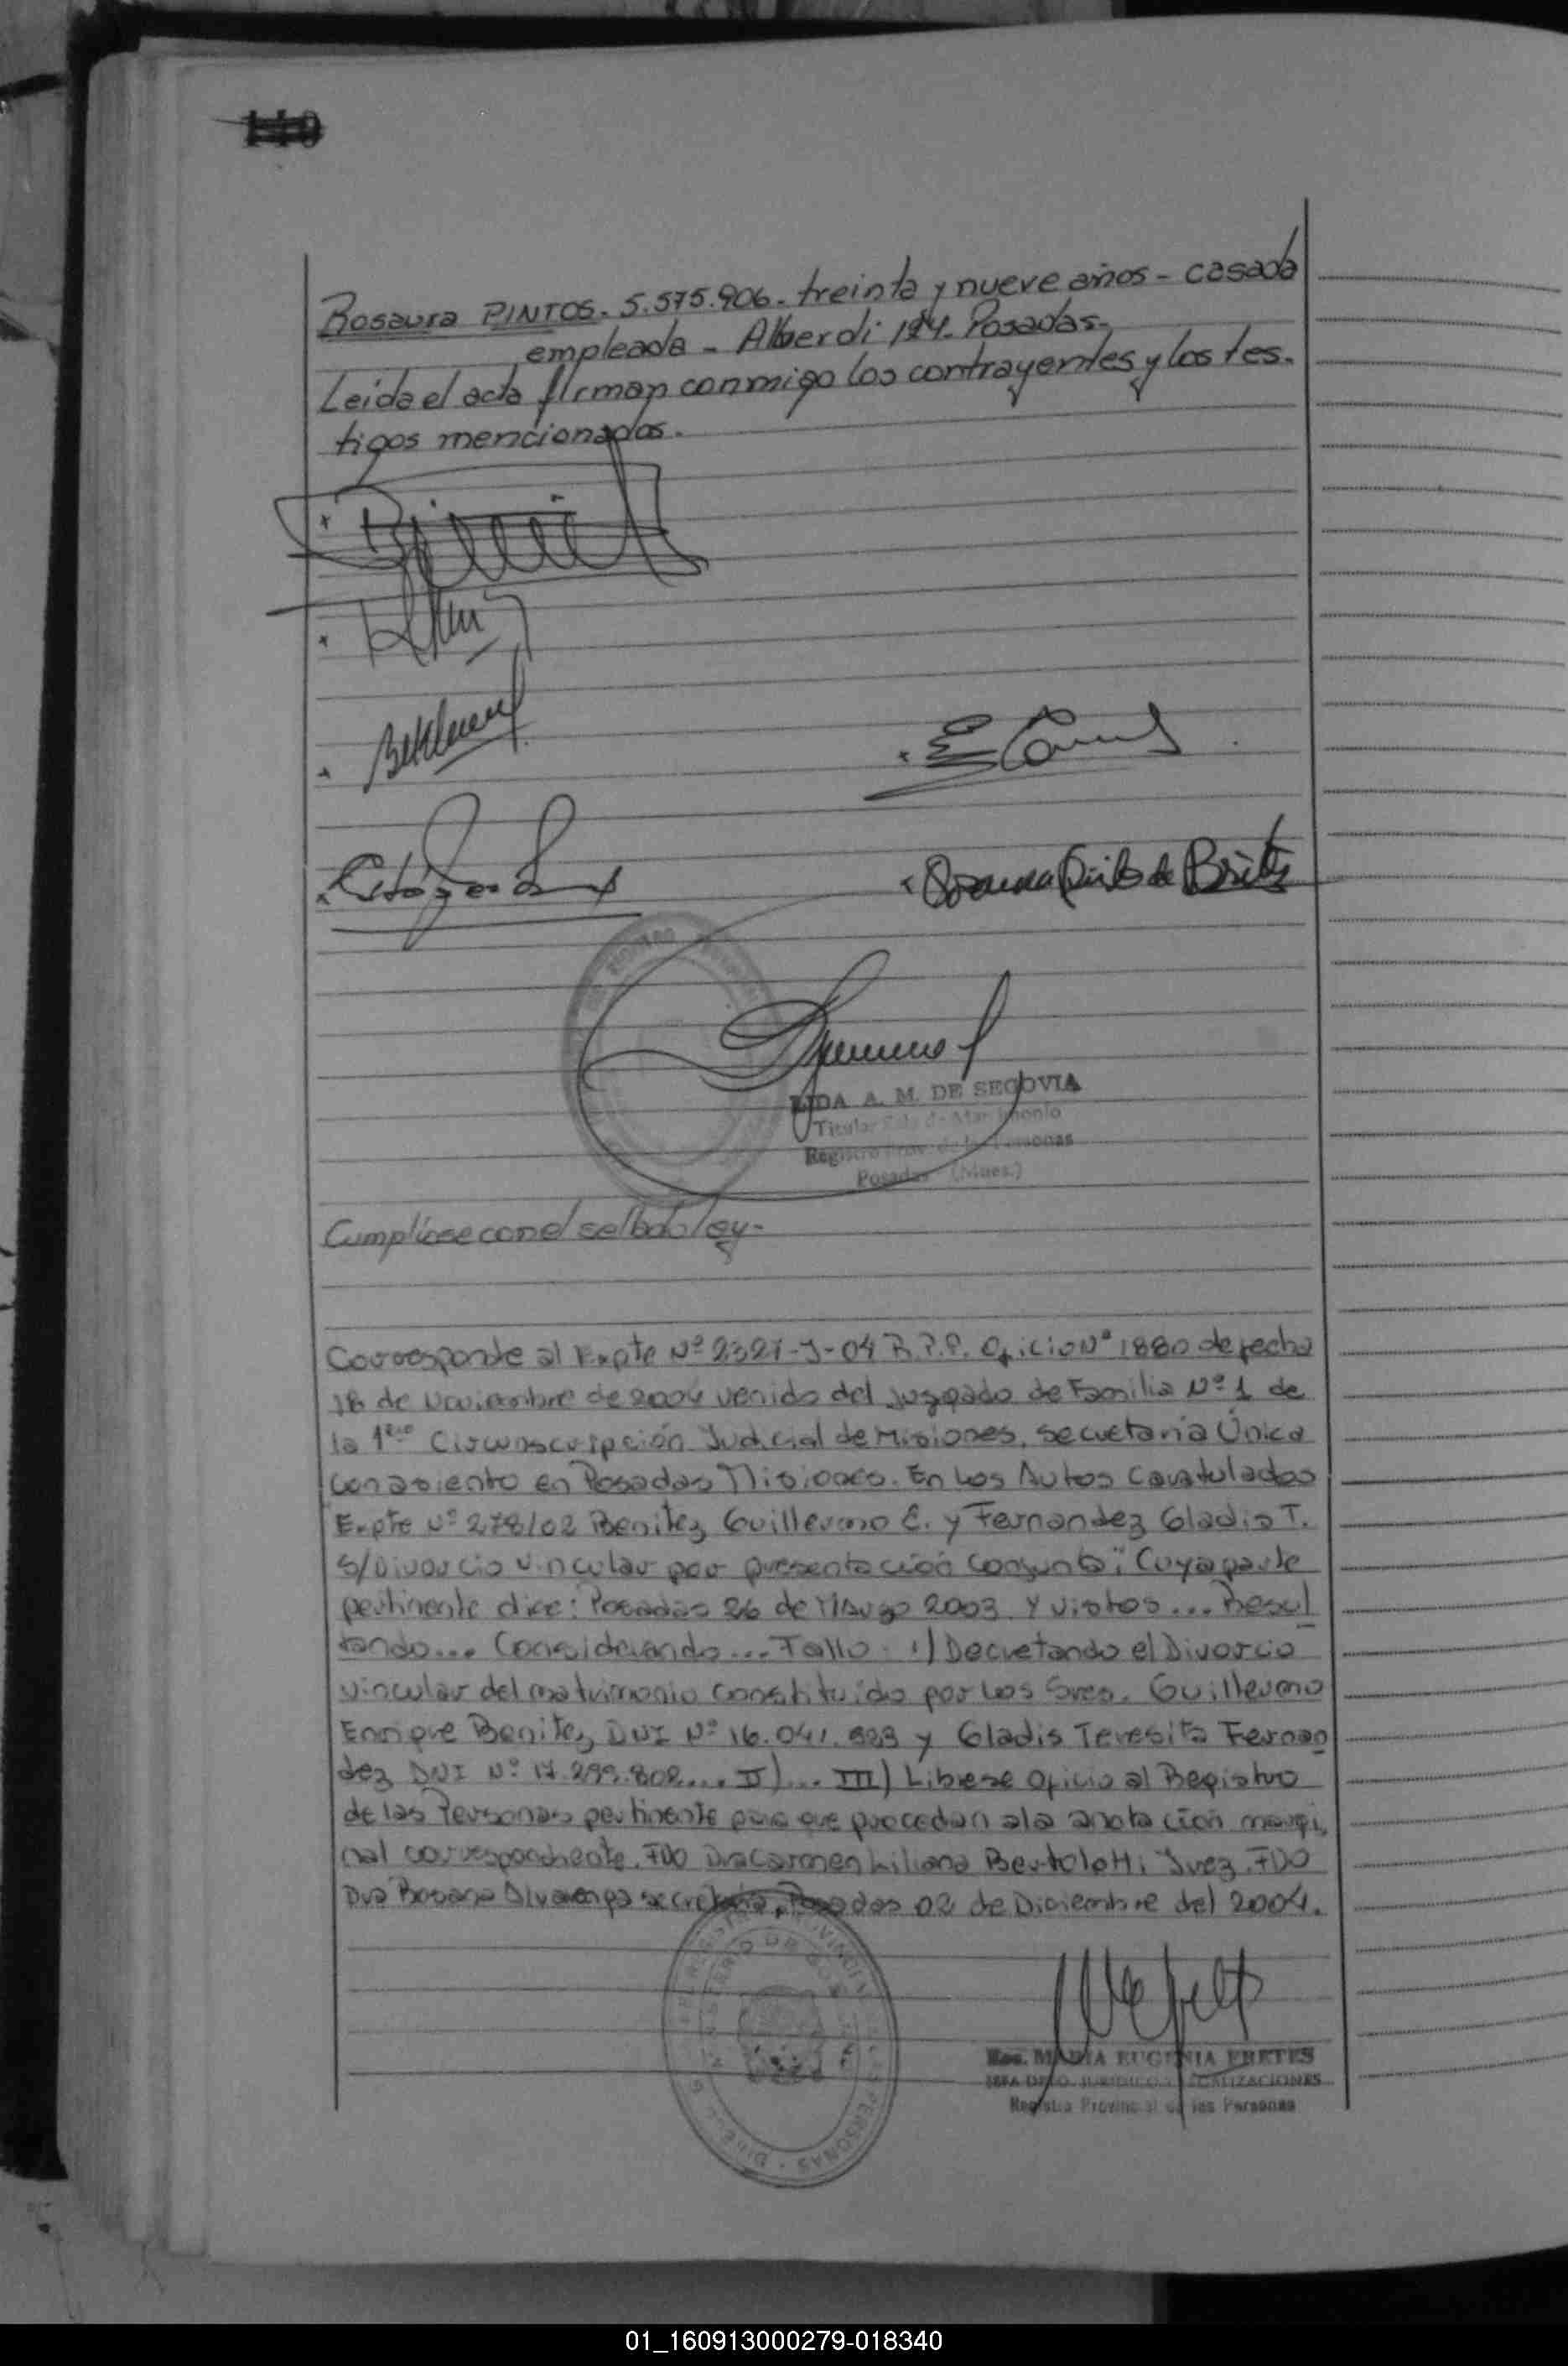 Rosaura PINTOS. 5.575.906. treinta y nueve años - casada
empleada - Alberdi Posadas.
Leída el acta firman conmigo los contrayentes y los tes.
tigos mencionados.
Rosaura Pinto de Britez
LIDA A. M. DE SEGOVIA
Titular Sala de Matrimonio
Registro Prov. de las Personas
Posadas (Mnes.)
Cumplióse con el sellado ley-
Corresponde al Expte Nº 2321-J-04 R.P.P. Oficio Nº 1880 de fecha
18 de Noviembre de 2004 venido del Juzgado de Familia Nº 1 de
la 1era Circunscripción Judicial de Misiones, secretaría Única
con asiento en Posadas Misiones. En Los Autos Caratulados
"Expte Nº 278/02 Benitez Guillermo E. y Fernandez Gladis T.
S/Divorcio Vincular por presentación Conjunta". Cuya parte
pertinente dice: Posadas 26 de Marzo 2003. Y vistos... Resul
tando... Considerando... Fallo: 1) Decretando el Divorcio
vincular del matrimonio constituido por Los Sres. Guillermo
Enrique Benitez DNI Nº 16.041.923 y Gladis Teresita Fernan
dez DNI Nº 17.299.802... II)... III) Librese Oficio al Registro
de las Personas pertinente para que procedan a la anotación margi,
nal correspondiente. FDO Dra Carmen Liliana Bertolotti Juez. FDO
Dra Rosana Alvarenga secretaria, Posadas 02 de Diciembre del 2004.
MARIA EUGENIA FRETES
JEFA DPTO. JURIDICO
Registro Provincial de las Personas
01_160913000279-018340